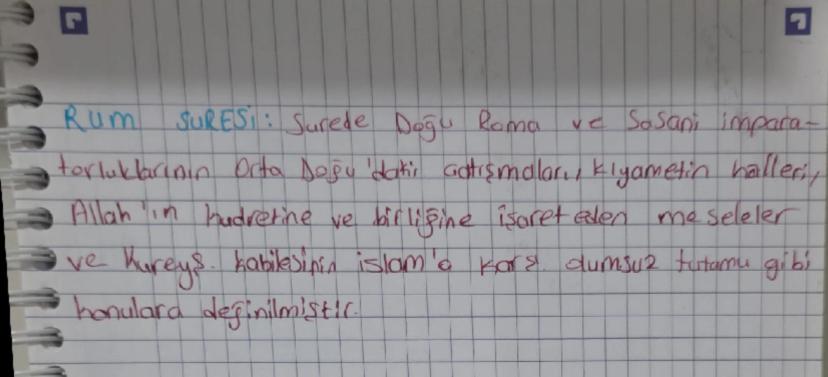 RUM SURESİ: Surede Doğu Roma ve Sasani impara-
torluklarının Orta Doğu'daki çatışmaları, kıyametin halleri,
Allah'ın kudretine ve birliğine işaret eden meseleler
ve Kureyş kabilesinin islam'a karşı olumsuz tutumu gibi
konulara değinilmiştir.